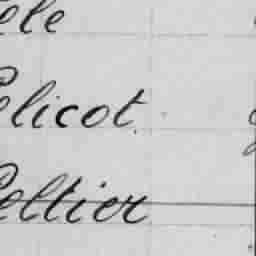 ele
elicot
eltier